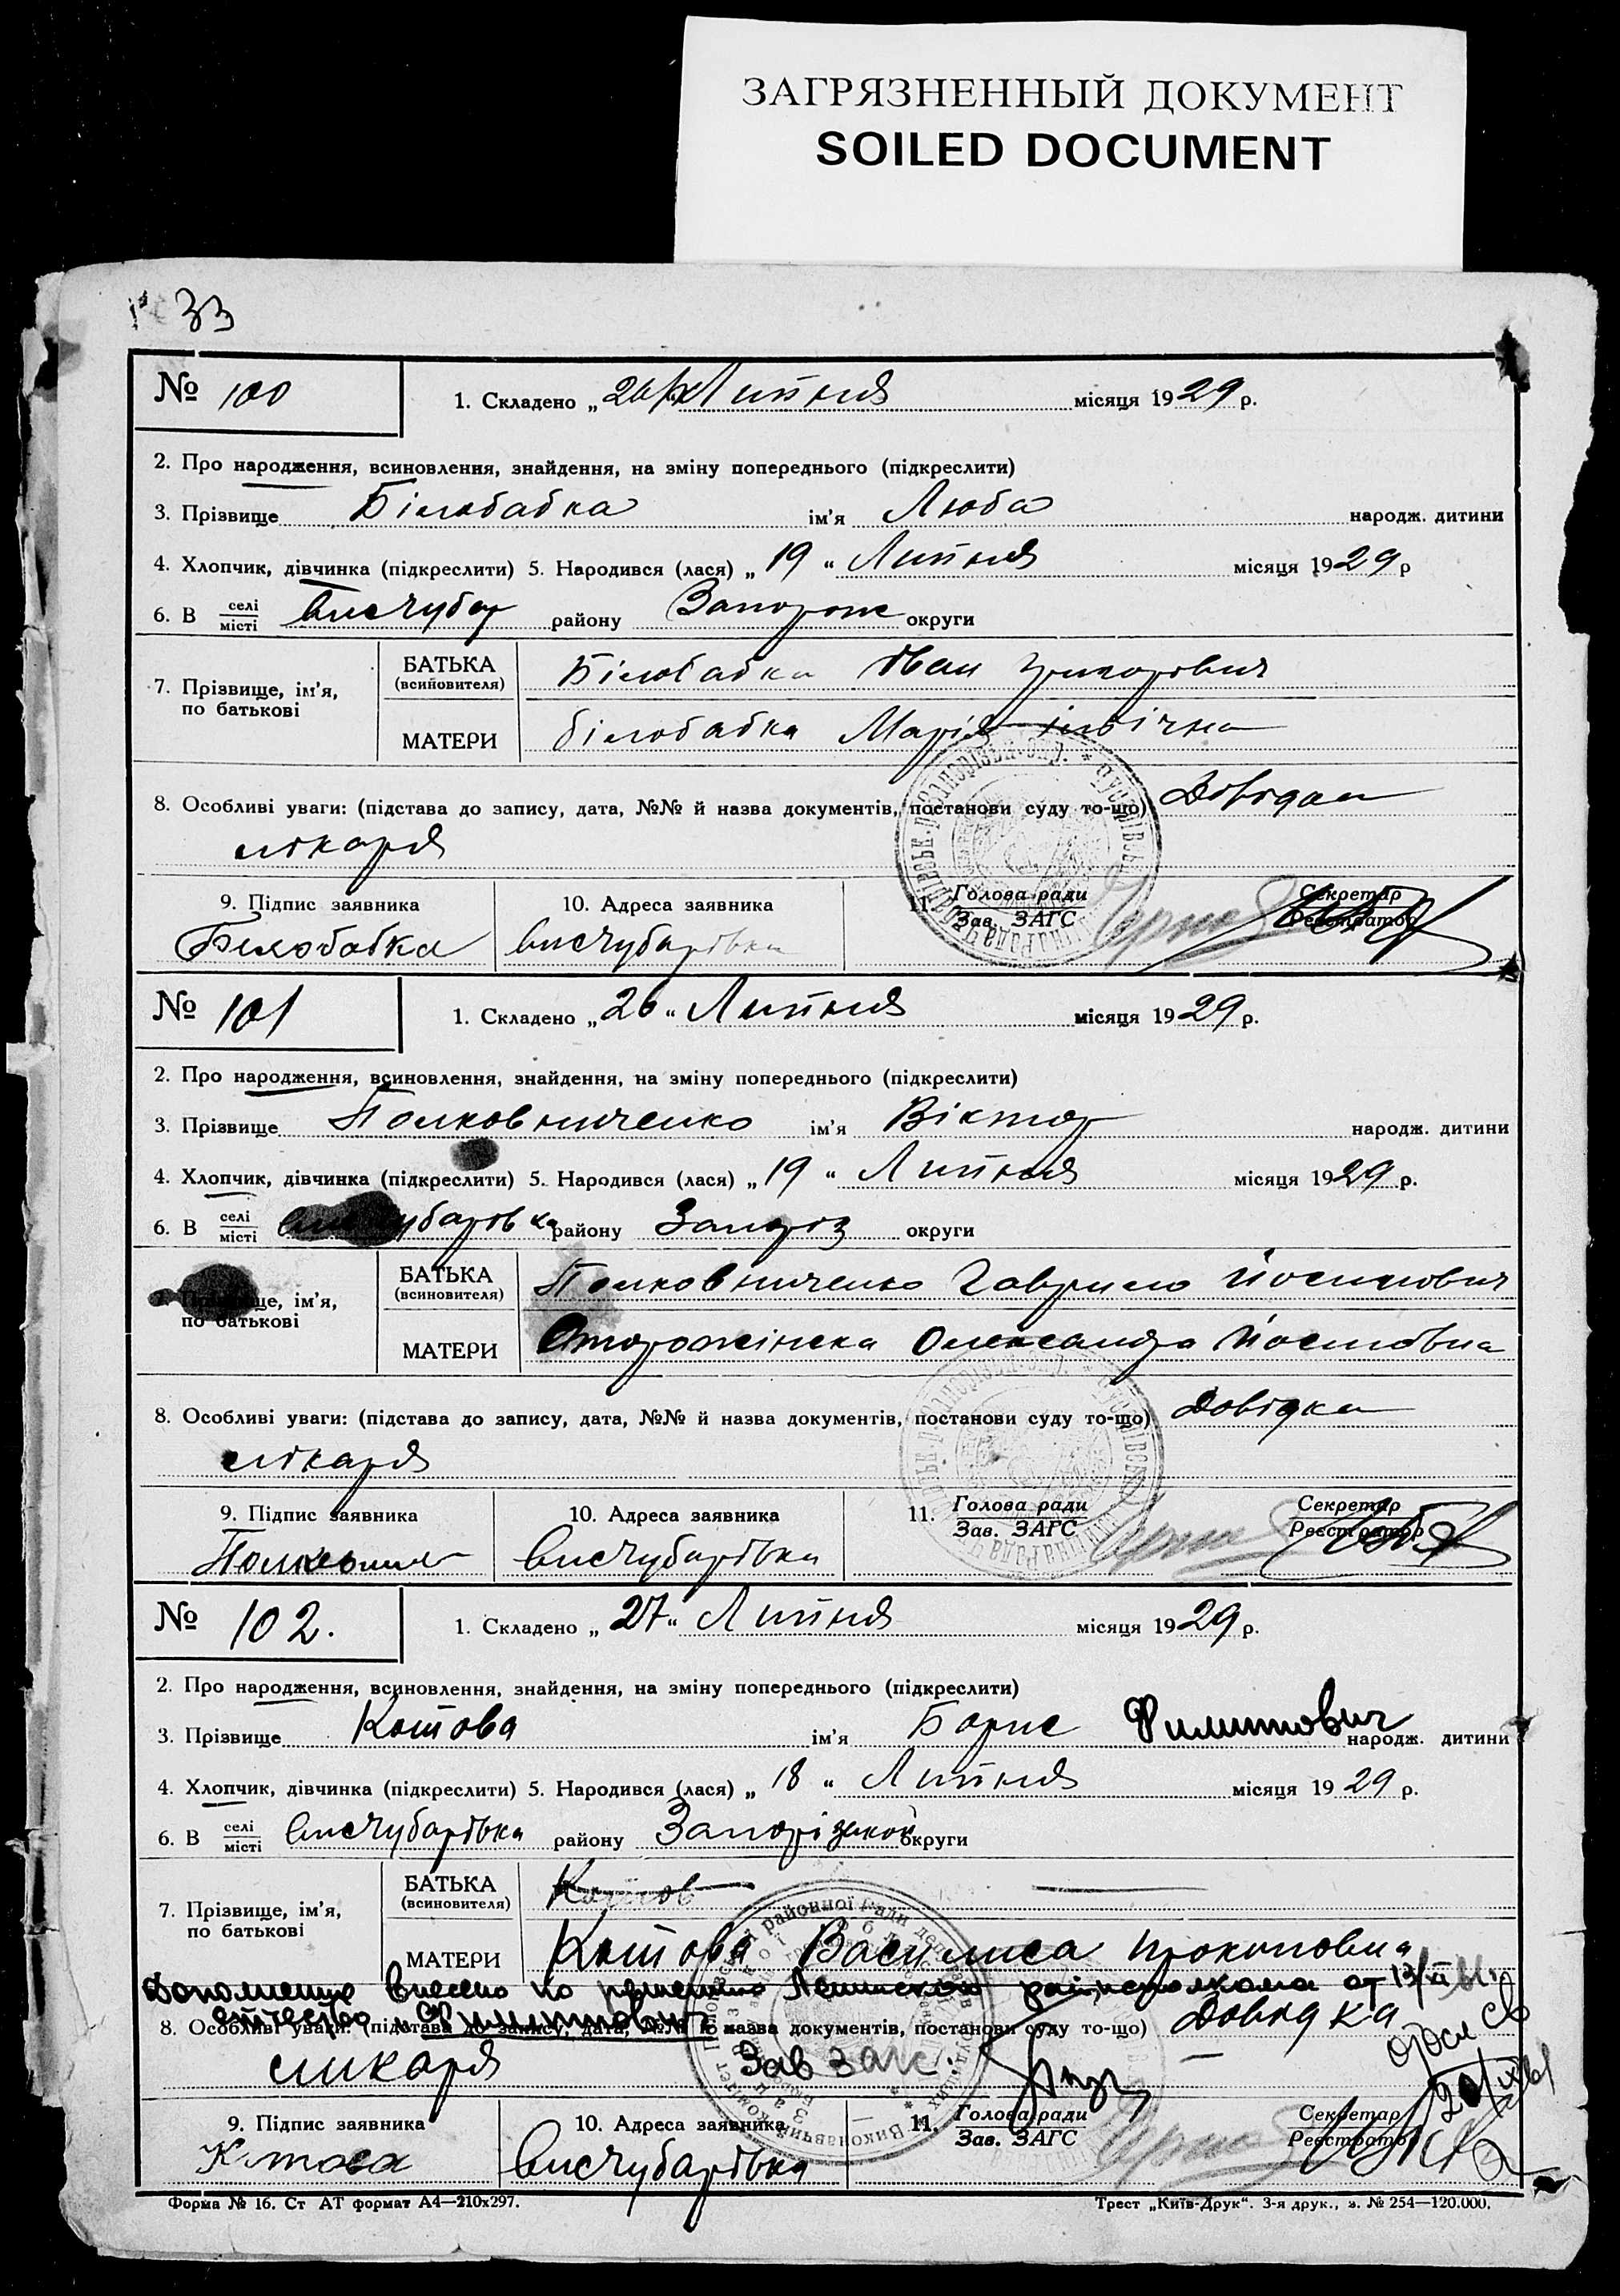 ЗАГРЯЗНЕННЫЙ ДОКУМЕНТ
SOILED DOCUMENT
33
№ 100 1. Складено „ 26 " Липня місяця 1929 р.
2. Про народження, всиновлення, знайдення, на зміну попереднього (підкреслити)
3. Прізвище Білобабка ім'я Люба народж. дитини
4. Хлопчик, дівчинка (підкреслити) 5. Народився (лася) „ 19 " Липня місяця 1929 р
6. В селі місті району Запорож округи
7. Прізвище, ім'я, по батькові
БАТЬКА (всиновителя) Білобабка Іван Григорович
МАТЕРИ Білобабка Марія
8. Особливі уваги: (підстава до запису, дата, №№ й назва документів, постанови суду то-що) Довідка
лікаря
9. Підпис заявника 10. Адреса заявника 11. Голова ради Зав. ЗАГС Секретар Реєстратор
Белобабка висЧубарівка
№ 101 1. Складено „ 26 " Липня місяця 1929 р.
2. Про народження, всиновлення, знайдення, на зміну попереднього (підкреслити)
3. Прізвище Полковниченко ім'я Віктор народж. дитини
4. Хлопчик, дівчинка (підкреслити) 5. Народився (лася) „ 19 " Липня місяця 1929 р.
6. В селі місті висЧубарівка району Запоріз округи
7. Прізвище, ім'я, по батькові
БАТЬКА (всиновителя) Полковниченко Гаврило Йосипович
МАТЕРИ Олександра Йосиповна
8. Особливі уваги: (підстава до запису, дата, №№ й назва документів, постанови суду то-що) Довідка
лікаря
9. Підпис заявника 10. Адреса заявника 11. Голова ради Зав. ЗАГС Секретар Реєстратор
висЧубарівка
№ 102. 1. Складено „ 27 " Липня місяця 1929 р.
2. Про народження, всиновлення, знайдення, на зміну попереднього (підкреслити)
3. Прізвище Котова ім'я Борис Филиппович народж. дитини
4. Хлопчик, дівчинка (підкреслити) 5. Народився (лася) „ 18 " Липня місяця 1929 р.
6. В селі місті висЧубарівка району Запорізької округи
7. Прізвище, ім'я, по батькові
БАТЬКА (всиновителя) Котов
МАТЕРИ Котова Василиса Прокоповна
Дополнение внесено по решению Ленинского райисполкома от 13/XI 61г.
отчество „Филиппович"
8. Особливі уваги: (підстава до запису, дата, №№ й назва документів, постанови суду то-що) Довідка
ликаря Зав Загс.
9. Підпис заявника 10. Адреса заявника 11. Голова ради Зав. ЗАГС Секретар Реєстратор
Котова висЧубарівка
Форма № 16. Ст АТ формат А4—210х297. Трест „Київ-Друк". 3-я друк., з. № 254—120.000.